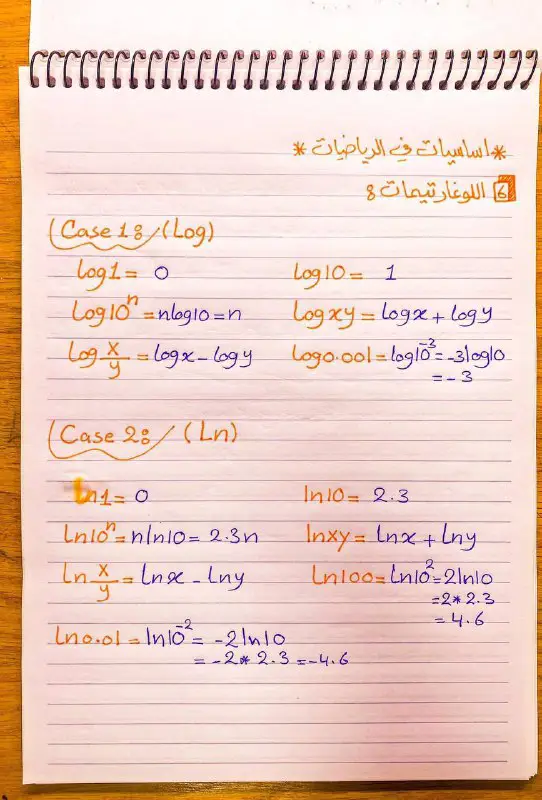 * اساسيات في الرياضيات *
6 اللوغارتيمات :
Case 1: / (Log)
log1 = 0 log10 = 1
Log10ⁿ = nlog10 = n Logxy = Logx + Logy
Log x/y = Logx - Logy Log0.001 = log10⁻³ = -3log10
= -3
Case 2: / (Ln)
Ln1 = 0 ln10 = 2.3
Ln10ⁿ = nln10 = 2.3n lnxy = Lnx + Lny
Ln x/y = Lnx - Lny Ln100 = Ln10² = 2ln10
= 2 * 2.3
= 4.6
Ln0.01 = ln10⁻² = -2ln10
= -2 * 2.3 = -4.6